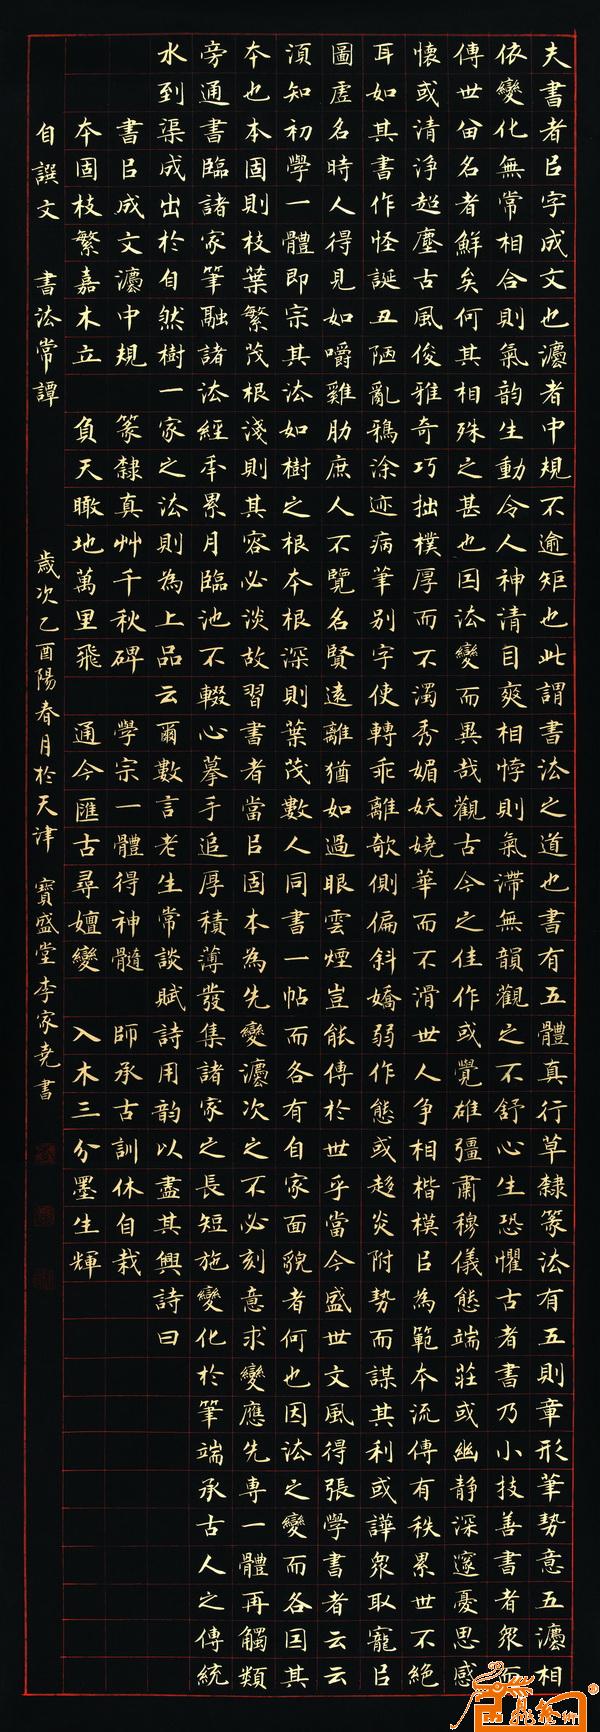 夫書者㠯字成文也灋者中規不逾矩也此謂書法之道也書有五體真行草隸篆法有五則章形筆勢意五灋相
依變化無常相合則氣韵生動令人神清目爽相悖則氣滯無韻觀之不舒心生恐懼古者書乃小技善書者眾而
傳世留名者鮮矣何其相殊之甚也因法變而異哉觀古今之佳作或覺雄彊肅穆儀態端莊或幽静深邃憂思感
懷或清浄超塵古風俊雅奇巧拙樸厚而不濁秀媚妖嬈華而不滑世人争相楷模㠯為範本流傳有秩累世不絕
耳如其書作怪誕丑陋亂鴉涂迹病筆別字使轉乖離欹側偏斜嬌弱作態或趁炎附勢而謀其利或譁眾取寵㠯
圖虛名時人得見如嚼雞肋庶人不覽名賢遠離猶如過眼雲煙豈能傳於世乎當今盛世文風得張學書者云云
須知初學一體即宗其法如樹之根本根深則葉茂數人同書一帖而各有自家面貌者何也因法之變而各因其
本也本固則枝葉繁茂根淺則其容必淡故習書者當㠯固本為先變灋次之不必刻意求變應先専一體再觸類
旁通書臨諸家筆融諸法經年累月臨池不輟心摹手追厚積薄發集諸家之長短施變化於筆端承古人之傳統
水到渠成出於自然樹一家之法則為上品云爾數言老生常談賦詩用韵以盡其興詩曰
書㠯成文灋中規 篆隸真艸千秋碑 學宗一體得神髓 師承古訓休自栽
本固枝繁嘉木立 負天瞰地萬里飛 通今匯古尋嬗變 入木三分墨生輝
自譔文 書法常譚 歲次乙酉陽春月於天津 寶盛堂李家堯書